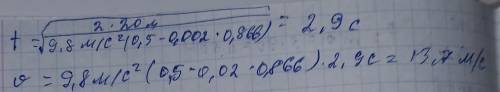 t = √(2·20м / 9,8 м/с²(0,5-0,002·0,866)) = 2,9с
υ = 9,8 м/с² (0,5-0,02·0,866)·2,9с = 13,7 м/с